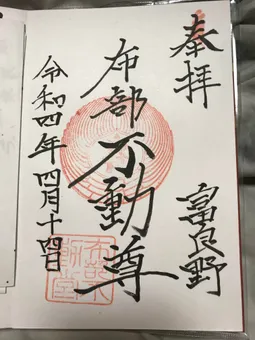 奉拝
富良野
布部不動尊
令和四年四月十四日